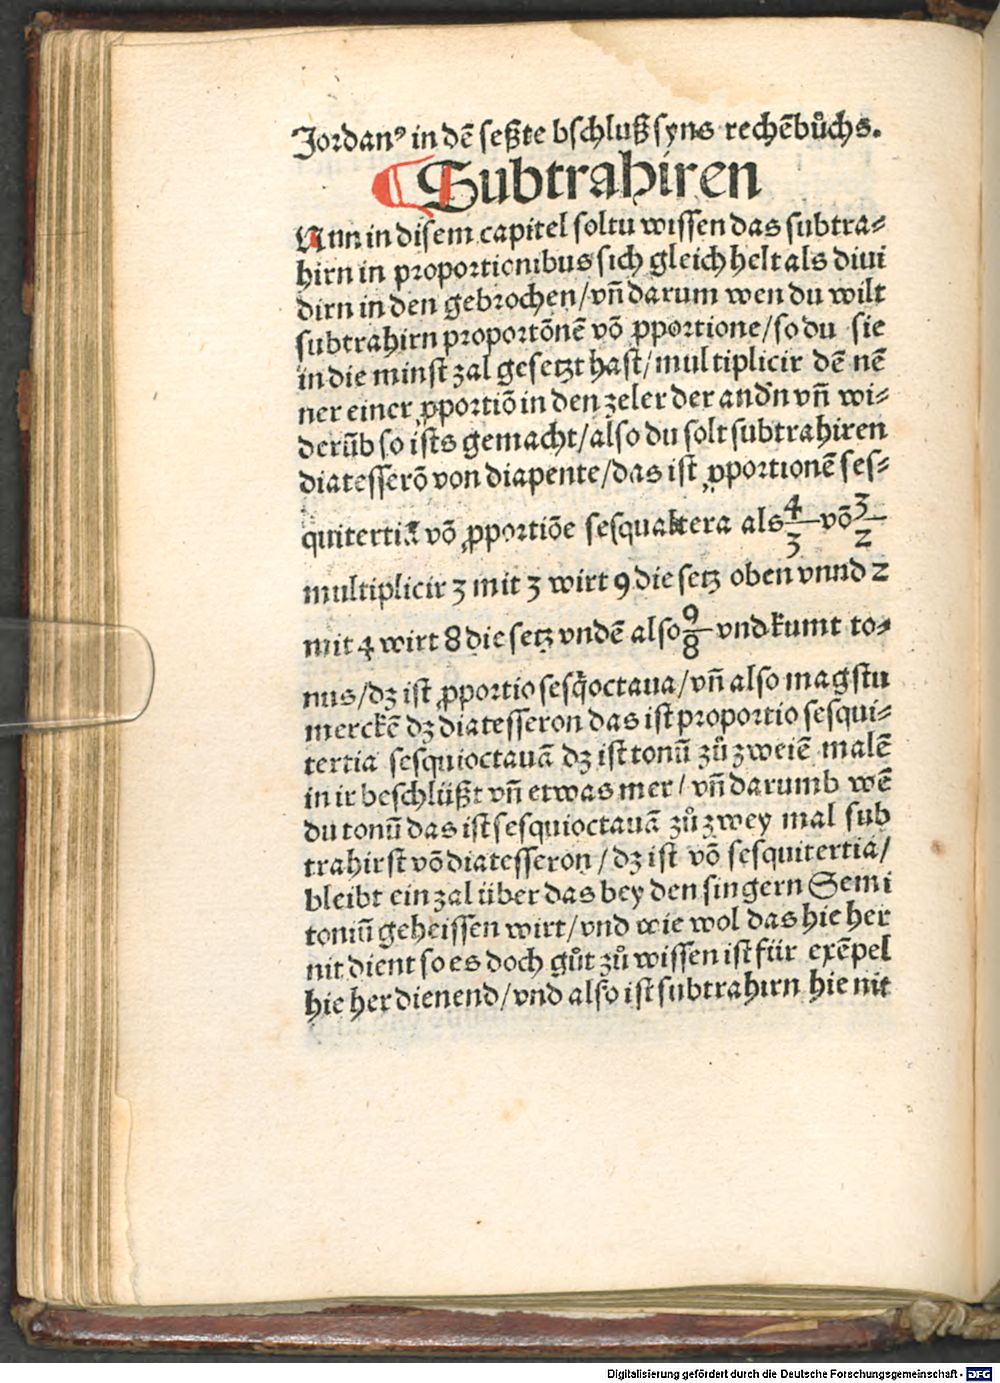 Jordanꝰ in dē seßte bschluß syns rechēbůchs.
Subtrahiren
Nun in disem capitel soltu wissen das subtra⸗
hirn in proportionibus sich gleich helt als diui
dirn in den gebrochen/vñ darum wen du wilt
subtrahirn proportõnē võ ꝓportione/so du sie
in die minst zal gesetzt hast/multiplicir dē nē
ner einer ꝓportiõ in den zeler der andn̄ vñ wi⸗
derūb so ists gemacht/also du solt subtrahiren
diatesserõ von diapente/das ist ꝓportionē ses⸗
quitertiā võ ꝓportiõe sesqualtera als 4/3 võ 3/2
multiplicir 3 mit 3 wirt 9 die setz oben vnnd 2
mit 4 wirt 8 die setz vndē also 9/8 vnd kumt to⸗
nus/dz ist ꝓportio sesq̄octaua/vñ also magstu
merckē dz diatesseron das ist proportio sesqui⸗
tertia sesquioctauā dz ist tonū zů zweiē malē
in ir beschlüßt vñ etwas mer/vñ darumb wē
du tonū das ist sesquioctauā zů zwey mal sub
trahirst võ diatesseron/dz ist võ sesquitertia/
bleibt ein zal über das bey den singern Semi
toniū geheissen wirt/vnd wie wol das hie her
nit dient so es doch gůt zů wissen ist für exēpel
hie her dienend/vnd also ist subtrahirn hie nit
Digitalisierung gefördert durch die Deutsche Forschungsgemeinschaft - DFG